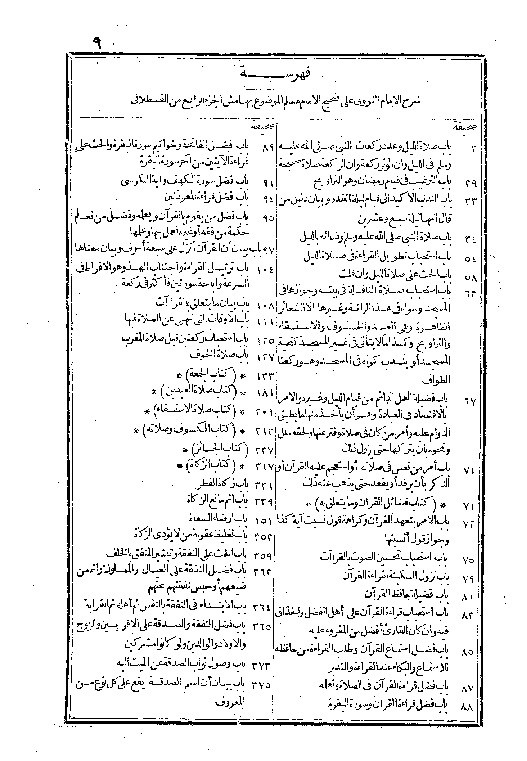 ٩
فهرسة
شرح الامام النووى على صحيح الامام مسلم الموضوع بهامش الجزء الرابع من القسطلانى
صحيفة
٢ باب صلاة الليل وعدد ركعات النبى صلى الله عليه
وسلم فى الليل وأن الوتر ركعة وان الركعة صلاة صحيحة
٢٩ باب الترغيب فى قيام رمضان وهو التراويح
٣٣ باب الندب الاكيد الى قيام ليلة القدر وبيان دليل من
قال انها ليلة سبع وعشرين
٣٤ باب صلاة النبى صلى الله عليه وسلم ودعائه بالليل
٥٤ باب استحباب تطويل القراءة فى صلاة الليل
٥٨ باب الحث على صلاة الليل وان قلت
٦٢ باب استحباب صلاة النافلة فى بيته وجوازها فى
المسجد وسواء فى هذا الراتبة وغيرها الا الشعائر
الظاهرة وهى العيد والكسوف والاستسقاء
والتراويح وكذا ما لا يتأتى فى غير المسجد كتحية
المسجد أو يندب كونه فى المسجد وهو ركعتا
الطواف
٦٧ باب فضيلة العمل الدائم من قيام الليل وغيره والامر
بالاقتصاد فى العبادة وهو أن يأخذ منها ما يطيق
الدوام عليه وأمر من كان فى صلاة وفتر عنها ولحقه ملل
ونحوه بأن يتركها حتى يزول ذلك
٧١ باب أمر من نعس فى صلاته أو استعجم عليه القرآن أو
الذكر بأن يرقد أو يقعد حتى يذهب عنه ذلك
٧١ * (كتاب فضائل القرآن وما يتعلق به) *
٧٢ باب الامر بتعهد القرآن وكراهة قول نسيت آية كذا
وجواز قول أنسيتها
٧٥ باب استحباب تحسين الصوت بالقرآن
٧٩ باب نزول السكينة لقراءة القرآن
٨١ باب فضيلة حافظ القرآن
٨٣ باب استحباب قراءة القرآن على أهل الفضل والحذاق
فيه وان كان القارئ أفضل من المقروء عليه
٨٥ باب فضل استماع القرآن وطلب القراءة من حافظه
للاستماع والبكاء عند القراءة والتدبر
٨٧ باب فضل قراءة القرآن فى الصلاة وتعلمه
٨٨ باب فضل قراءة القرآن وسورة البقرة
صحيفة
٨٩ باب فضل الفاتحة وخواتيم سورة البقرة والحث على
قراءة الآيتين من آخر سورة البقرة
٩١ باب فضل سورة الكهف وآية الكرسى
٩٤ باب فضل قراءة المعوذتين
٩٥ باب فضل من يقوم بالقرآن ويعلمه وفضل من تعلم
حكمة من فقه أو غيره فعمل بها وعلمها
٩٧ باب بيان أن القرآن أنزل على سبعة أحرف وبيان معناها
١٠٤ باب ترتيل القراءة واجتناب الهذ وهو الافراط فى
السرعة واباحة سورتين فأكثر فى ركعة
١٠٨ باب بيان ما يتعلق بالقراآت
١١١ باب الاوقات التى نهى عن الصلاة فيها
١٢٥ باب استحباب ركعتين قبل صلاة المغرب
١٢٧ باب صلاة الخوف
١٣٣ * (كتاب الجمعة) *
١٨١ * (كتاب صلاة العيدين) *
٢٠١ * (كتاب صلاة الاستسقاء) *
٢١٢ * (كتاب الكسوف وصلاته) *
٢٣٧ * (كتاب الجنائز) *
٣١٧ * (كتاب الزكاة) *
٣٣١ باب زكاة الفطر
٣٣٩ باب اثم مانع الزكاة
٣٥١ باب ارضاء السعاة
٣٥٢ باب تغليظ عقوبة من لا يؤدى الزكاة
٣٥٩ باب الحث على النفقة وتبشير المنفق بالخلف
٣٦٢ باب فضل النفقة على العيال والمملوك واثم من
ضيعهم أو حبس نفقتهم عنهم
٣٦٤ باب الابتداء فى النفقة بالنفس ثم أهله ثم القرابة
٣٦٥ باب فضل النفقة والصدقة على الاقربين والزوج
والاولاد والوالدين ولو كانوا مشركين
٣٧٣ باب وصول ثواب الصدقة عن الميت اليه
٣٧٥ باب بيان أن اسم الصدقة يقع على كل نوع من
المعروف